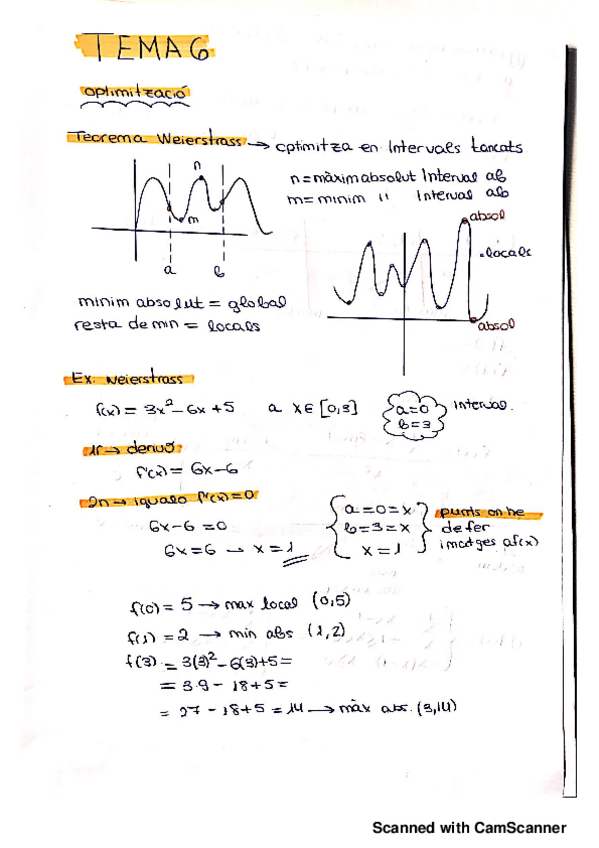 TEMA 6
optimització
Teorema Weierstrass → optimitza en Intervals tancats
n = màxim absolut Interval ab
m = minim " Interval ab
n
m
a
b
absol
• locals
absol
minim absolut = global
resta de min = locals
Ex. Weierstrass
f(x) = 3x² - 6x + 5 a x ∈ [0,3]
a=0
b=3
interval.
1r → derivo
f'(x) = 6x - 6
2n → igualo f'(x) = 0
6x - 6 = 0
6x = 6 → x = 1
a = 0 = x
b = 3 = x
x = 1
punts on he
de fer
imatges a f(x)
f(0) = 5 → max local (0,5)
f(1) = 2 → min abs (1,2)
f(3) = 3(3)² - 6(3) + 5 =
= 3·9 - 18 + 5 =
= 27 - 18 + 5 = 14 → màx abs. (3,14)
Scanned with CamScanner